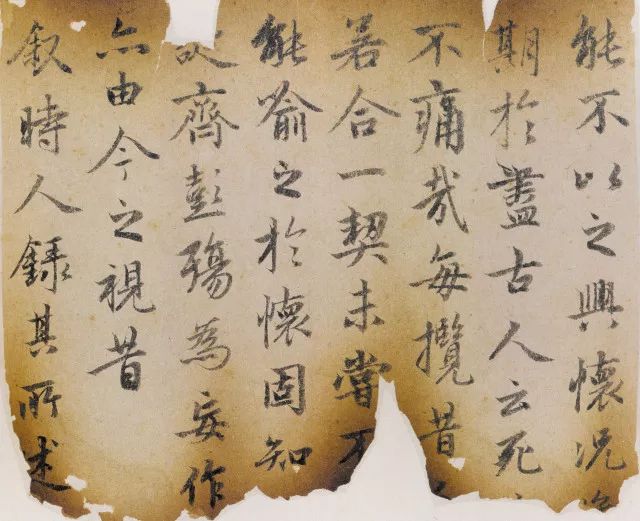 能不以之興懷況脩
期於盡古人云死
不痛哉每攬昔
若合一契未嘗不
能喻之於懷固知
齊彭殤為妄作
亦由今之視昔
叙時人録其所述